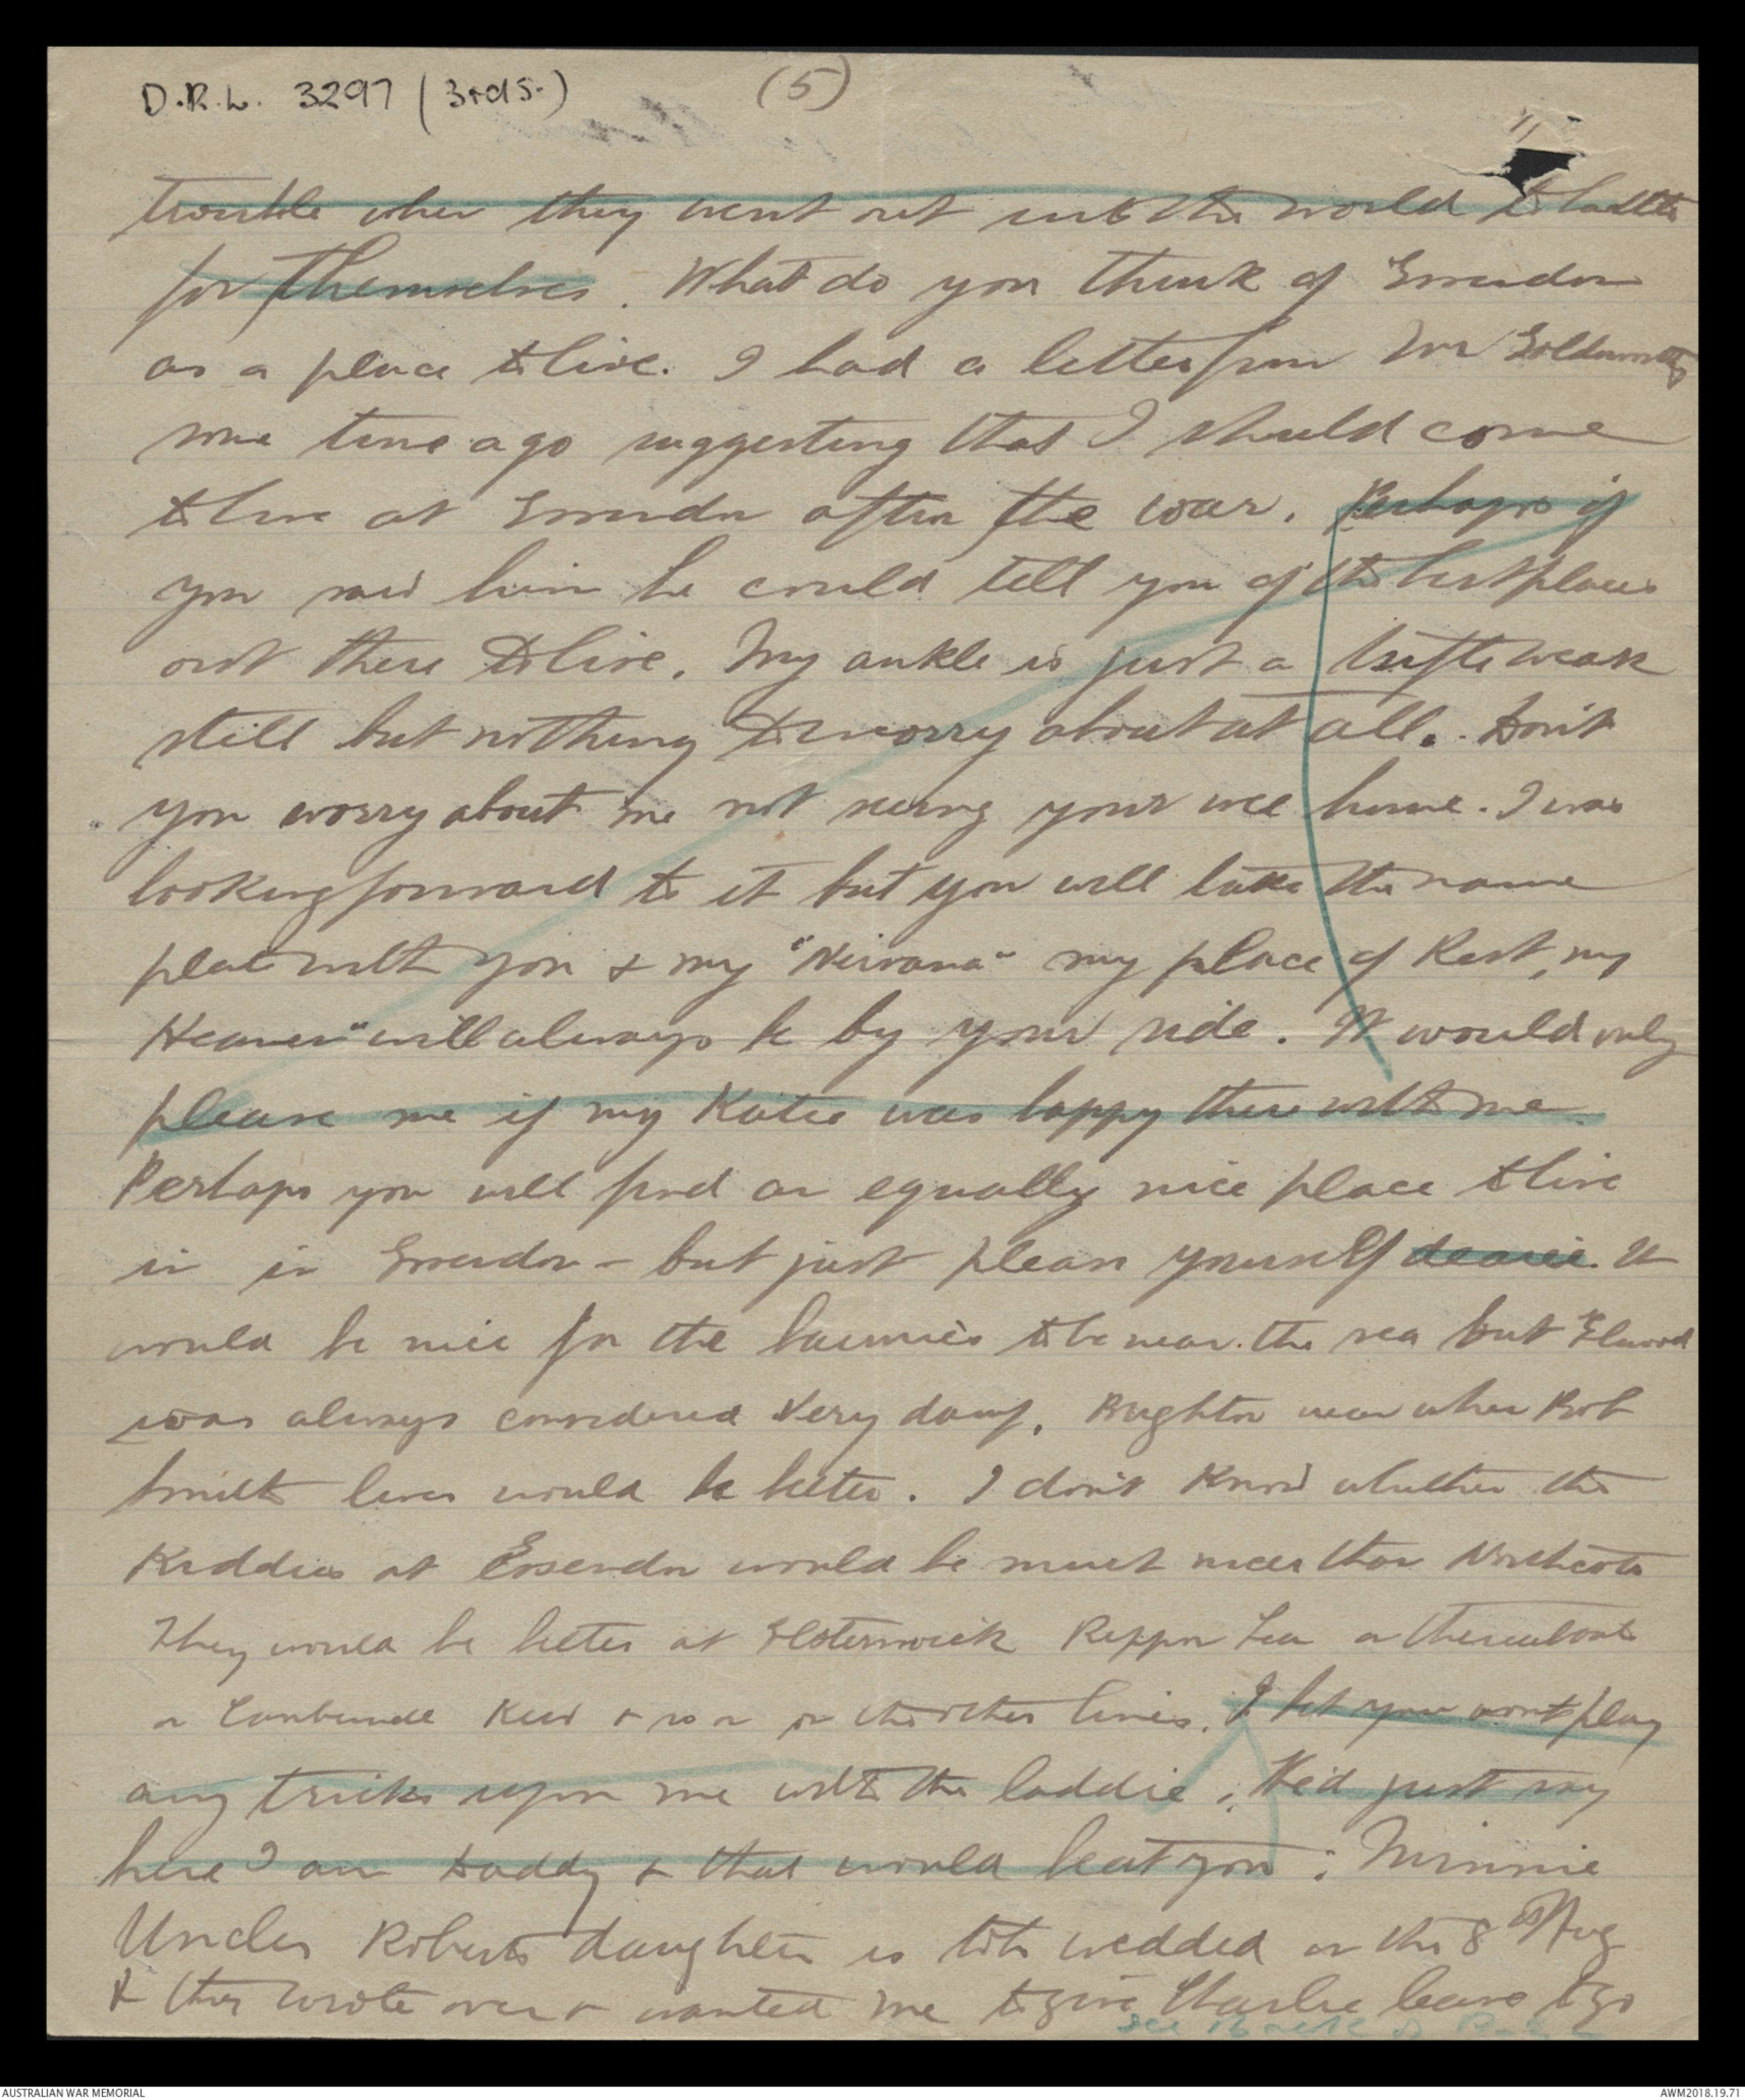 D.R.L. 3297 (3rd S.)
(5)
trouble when they went out into the world to battle
for themselves. What do you think of Essendon
as a place to live. I had a letter from Mr Goldsworthy
some time ago suggesting that I should come
to live at Essendon after the war. Perhaps if
you saw him he could tell you of the best places
out there to live. My ankle is just a trifle weak
still but nothing to worry about at all. Don't
you worry about me not seeing your wee home. I was
looking forward to it but you will take the name
plate with you & my "Nirvana" my place of Rest, my
Heaven" will always be by your side. It would only
please me if my Katie was happy there with me.
Perhaps you will find an equally nice place to live
in in Essendon - but just please yourself dearie. It
would be nice for the bairnies to be near the sea but Elwood
was always considered very damp. Brighton near where Bob
Smith lives would be better. I don't know whether the
Kiddies at Essendon would be much nicer than Northcote
They would be better at Elsternwick Rippon Lea or thereabouts
or Camberwell Kew & so on on the other lines. I bet you won't play
any tricks upon me with the laddie; He'd just say
here I am Daddy & that would beat you; Minnie
Uncle Roberts daughter is to be wedded on the 8th Aug
& they wrote over & wanted me to give Charlie leave to go
see back of